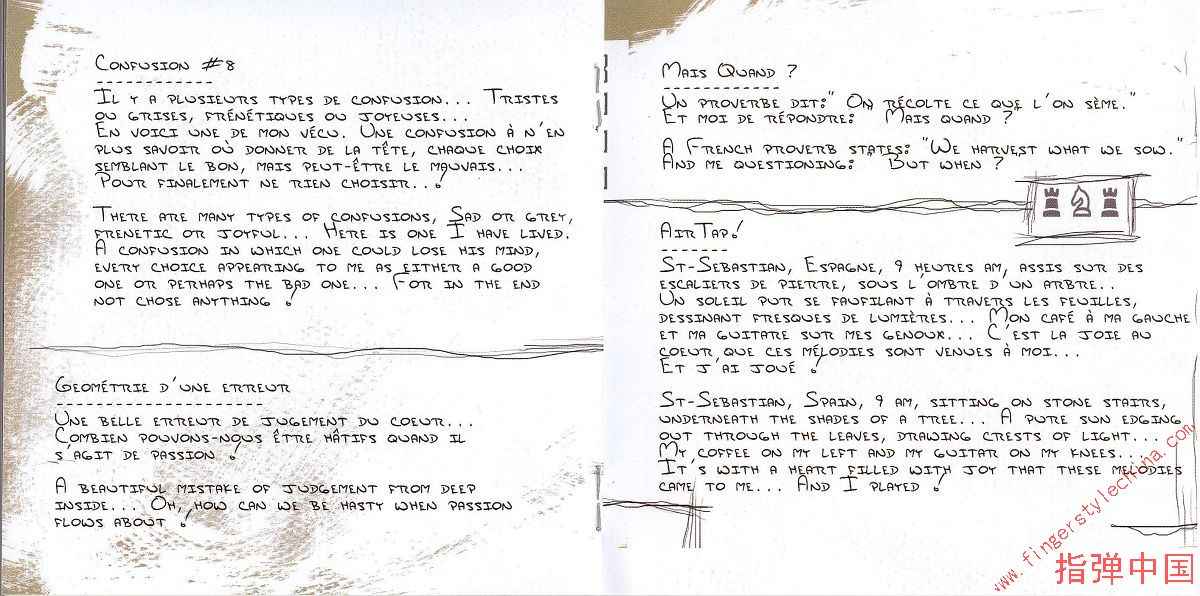 Confusion #8
Il y a plusieurs types de confusion... Tristes
ou grises, frénétiques ou joyeuses...
En voici une de mon vécu. Une confusion à n'en
plus savoir où donner de la tête, chaque choix
semblant le bon, mais peut-être le mauvais...
Pour finalement ne rien choisir...!
There are many types of confusions, Sad or grey,
frenetic or joyful... Here is one I have lived.
A confusion in which one could lose his mind,
every choice appearing to me as either a good
one or perhaps the bad one... For in the end
not chose anything !
Geométrie d'une erreur
Une belle erreur de jugement du coeur...
Combien pouvons-nous être hâtifs quand il
s'agit de passion !
A beautiful mistake of judgement from deep
inside... Oh, how can we be hasty when passion
flows about !
Mais Quand ?
Un proverbe dit:" On récolte ce que l'on sème."
Et moi de répondre: " Mais quand ?"
A French proverb states: "We harvest what we sow."
And me questioning: But when ?
AirTap!
St-Sebastian, Espagne, 9 heures am, assis sur des
escaliers de pierre, sous l'ombre d'un arbre..
Un soleil pur se faufilant à travers les feuilles,
dessinant fresques de lumières... Mon café à ma gauche
et ma guitare sur mes genoux... C'est la joie au
coeur que ces mélodies sont venues à moi...
Et j'ai joué !
St-Sebastian, Spain, 9 am, sitting on stone stairs,
underneath the shades of a tree... A pure sun edging
out through the leaves, drawing crests of light...
My coffee on my left and my guitar on my knees...
It's with a heart filled with joy that these melodies
came to me... And I played !
www.fingerstylechina.com
指弹中国